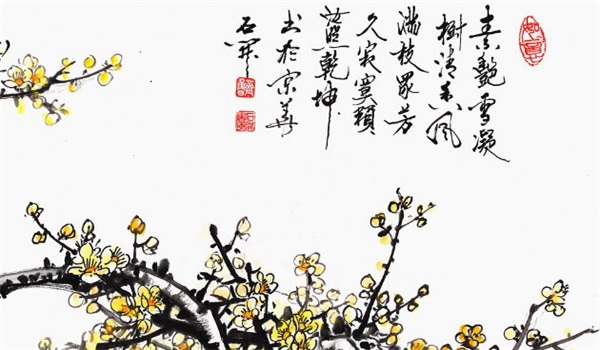 素艷雪凝
樹清香風
滿枝眾芳
久寂寞顆
照乾坤
書於京華
石開